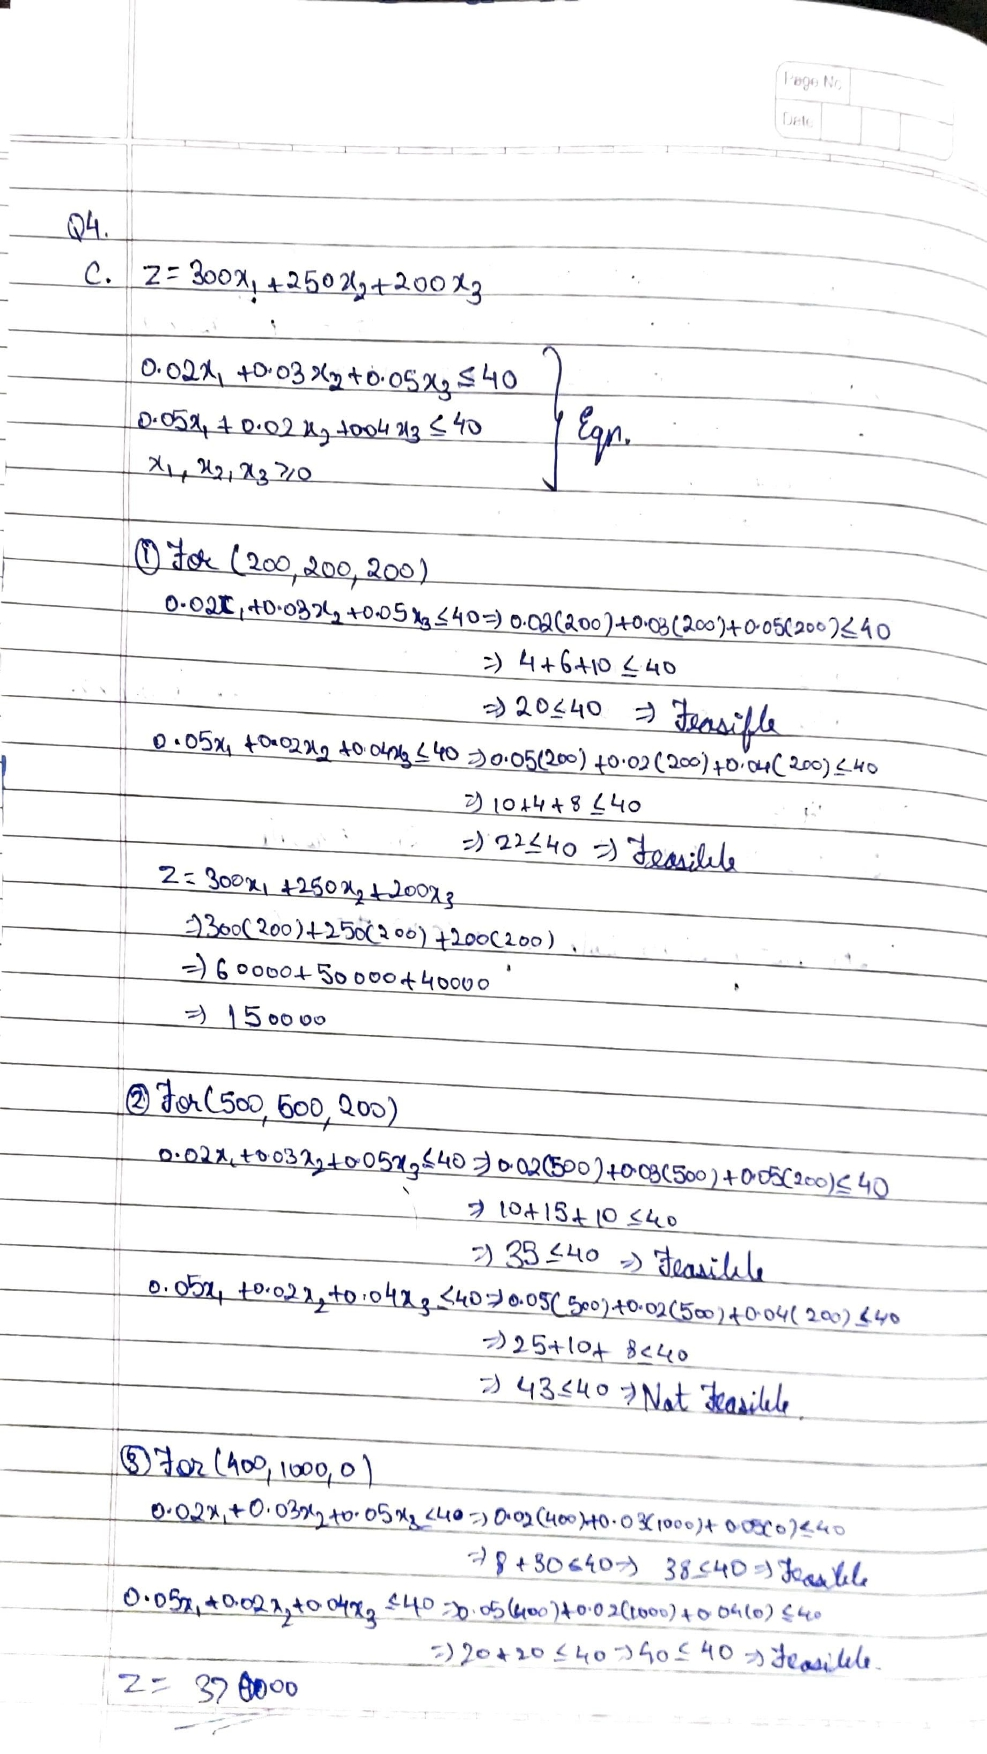 Page No.
Date
Q4.
C. Z = 300x₁ + 250x₂ + 200x₃
0.02x₁ + 0.03x₂ + 0.05x₃ ≤ 40
0.05x₁ + 0.02x₂ + 004x₃ ≤ 40
Eqn.
x₁, x₂, x₃ ≥ 0
① For (200, 200, 200)
0.02x₁ + 0.03x₂ + 0.05x₃ ≤ 40 ⇒ 0.02(200) + 0.03(200) + 0.05(200) ≤ 40
⇒ 4 + 6 + 10 ≤ 40
⇒ 20 ≤ 40 ⇒ Feasible
0.05x₁ + 0.02x₂ + 0.04x₃ ≤ 40 ⇒ 0.05(200) + 0.02(200) + 0.04(200) ≤ 40
⇒ 10 + 4 + 8 ≤ 40
⇒ 22 ≤ 40 ⇒ Feasible
Z = 300x₁ + 250x₂ + 200x₃
⇒ 300(200) + 250(200) + 200(200)
⇒ 60000 + 50000 + 40000
⇒ 150000
② For (500, 500, 200)
0.02x₁ + 0.03x₂ + 0.05x₃ ≤ 40 ⇒ 0.02(500) + 0.03(500) + 0.05(200) ≤ 40
⇒ 10 + 15 + 10 ≤ 40
⇒ 35 ≤ 40 ⇒ Feasible
0.05x₁ + 0.02x₂ + 0.04x₃ ≤ 40 ⇒ 0.05(500) + 0.02(500) + 0.04(200) ≤ 40
⇒ 25 + 10 + 8 < 40
⇒ 43 ≤ 40 ⇒ Not Feasible.
③ For (400, 1000, 0)
0.02x₁ + 0.03x₂ + 0.05x₃ ≤ 40 ⇒ 0.02(400) + 0.03(1000) + 0.05(0) ≤ 40
⇒ 8 + 30 ≤ 40 ⇒ 38 ≤ 40 ⇒ Feasible
0.05x₁ + 0.02x₂ + 0.04x₃ ≤ 40 ⇒ 0.05(400) + 0.02(1000) + 0.04(0) ≤ 40
⇒ 20 + 20 ≤ 40 ⇒ 40 ≤ 40 ⇒ Feasible.
Z = 370000